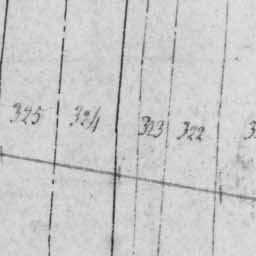 325 324 323 322 3